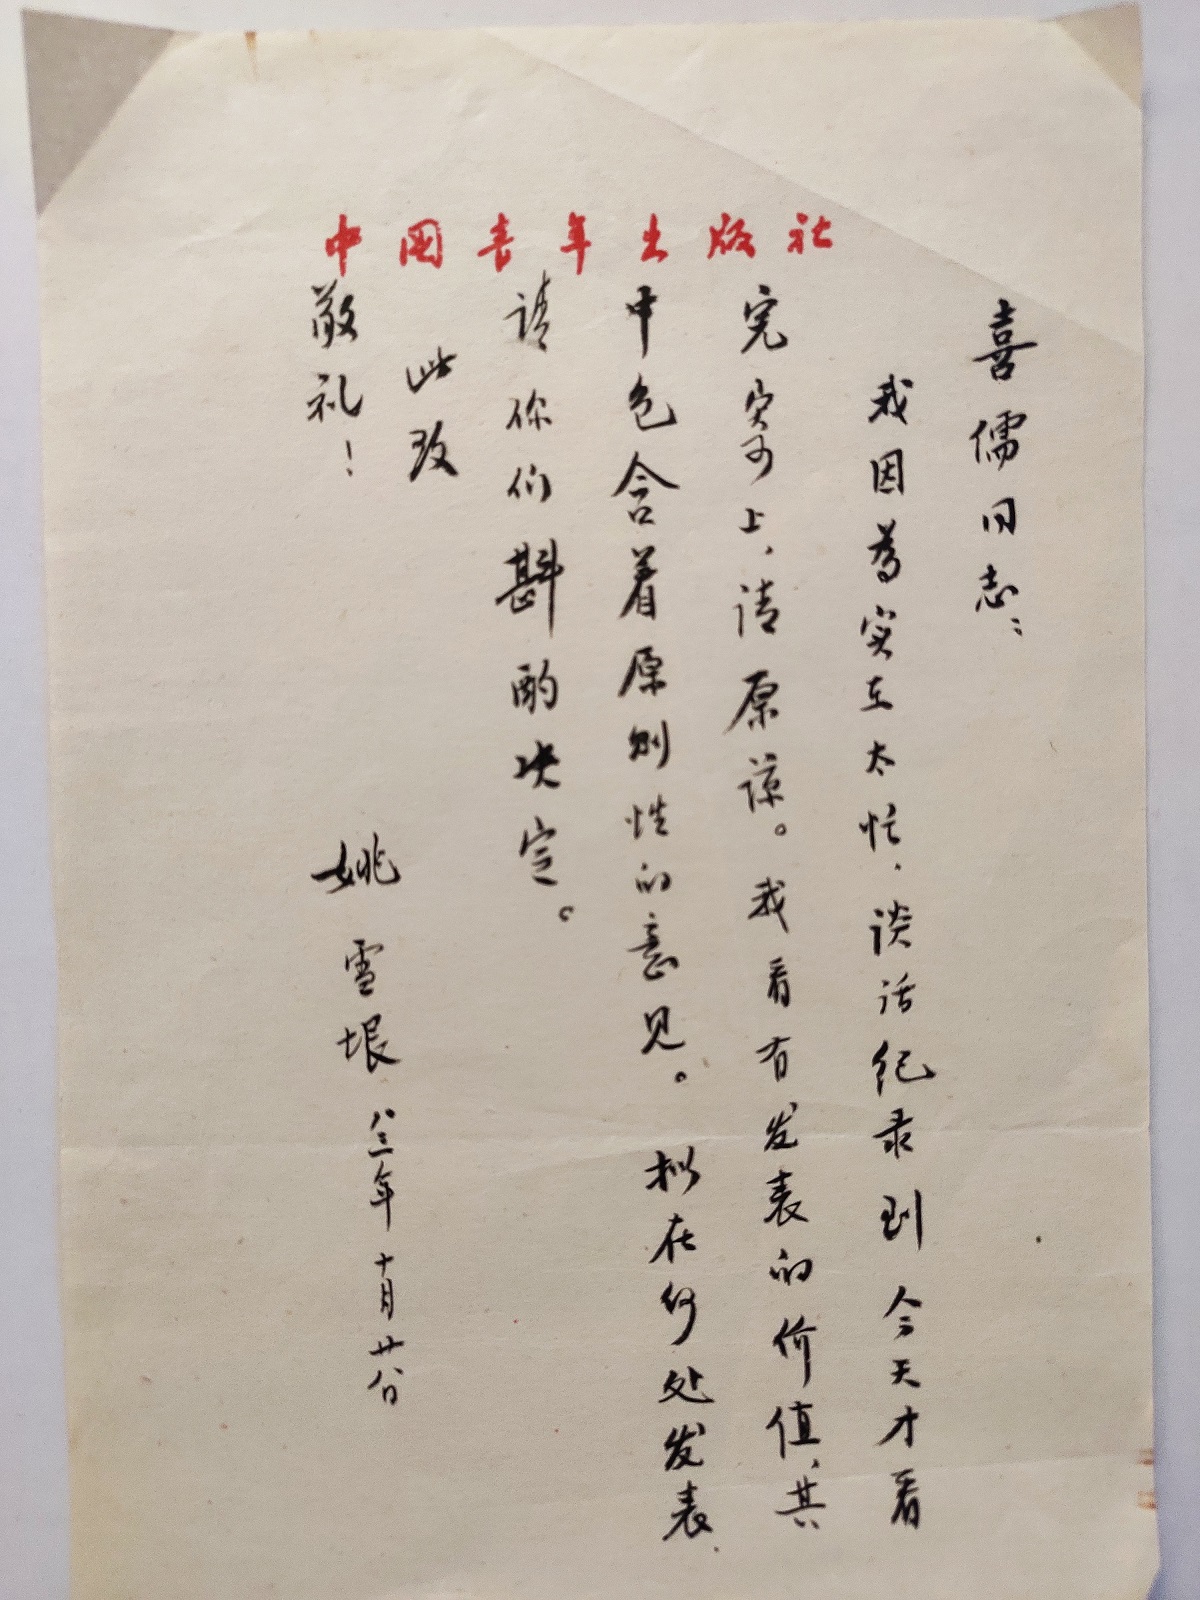 中国青年出版社
喜儒同志：
我因为实在太忙，谈话纪录到今天才看
完寄上，请原谅。我看有发表的价值，其
中包含着原则性的意见。拟在何处发表，
请你们斟酌决定。
此致
敬礼！
姚雪垠 八三年十月廿八日